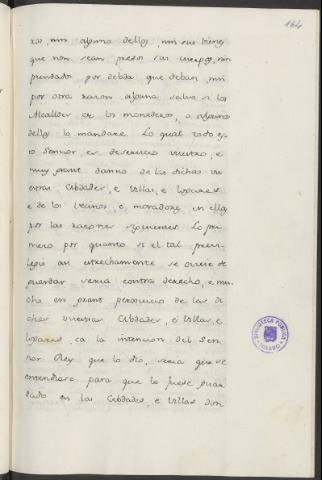 164
ros, nin alguno dellos, nin sus bienes
que non sean presos sus cuerpos, nin
prendado por debda que deban, nin
por otra razon alguna salvo si los
Alcalldes de los monederos, o alguno
dellos lo mandare. Lo qual todo es-
to Sennor, es deservicio vuestro, e
muy grant danno de las dichas vu
estras Cibdades, e Villas, e Lugares
e de los vecinos, e moradores en ellos
por las razones siguientes. Lo pri
mero por quanto si el tal previ-
legio an estrechamente se oviese de
guardar seria contra derecho, e mu
cho en grant perjuicio de las di
chas vuestras Cibdades, e Villas, e
Lugares, ca la intencion del Sen-
nor Rey que lo dió, seria que se
entendiese para que le fuese guar
dado en las Cibdades, e Villas don
BIBLIOTECA PUBLICA
TOLEDO